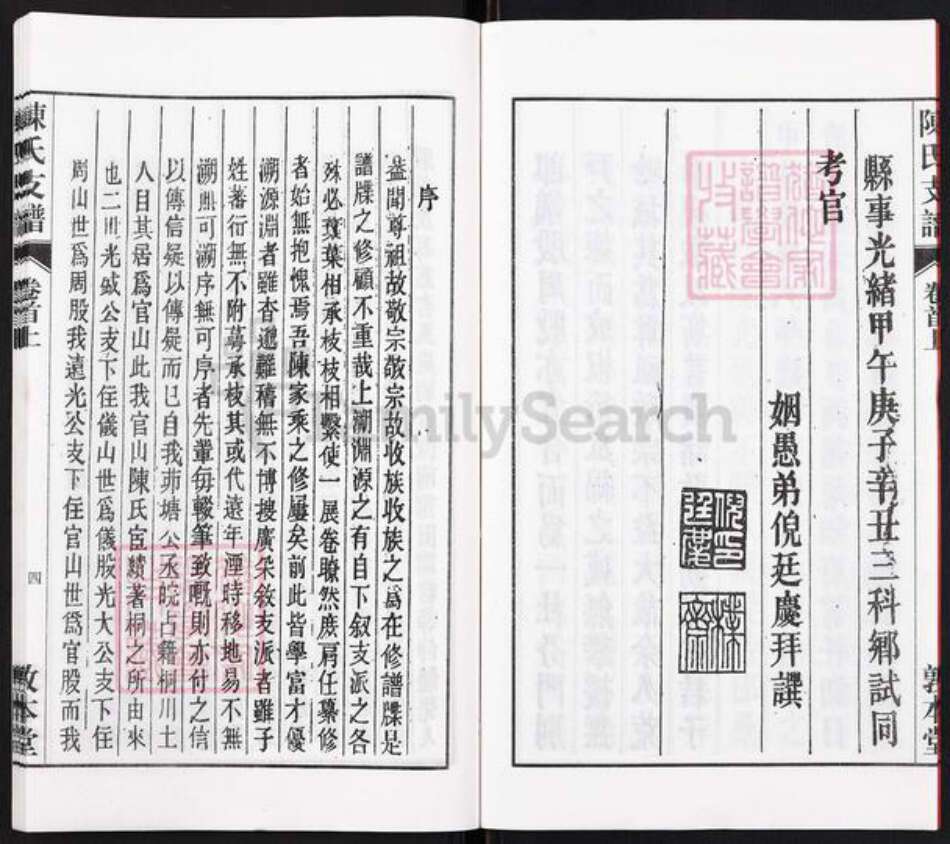 陳氏支譜 卷首上 敦本堂
縣事光緒甲午庚子辛丑三科鄉試同
考官
姻愚弟倪廷慶拜譔
序
蓋聞尊祖故敬宗敬宗故收族收族之爲在修譜牒是
譜牒之修顧不重哉上溯淵源之有自下叙支派之各
殊必葉葉相承枝枝相繫使一展卷瞭然庶肩任纂修
者始無抱愧焉吾陳家乘之修屢矣前此皆學富才優
溯源淵者雖杳邈難稽無不博搜廣采敘支派者雖子
姓蕃衍無不附萼承枝其或代遠年湮時移地易不無
溯無可溯序無可序者先輩每輟筆致嘅則亦付之信
以傳信疑以傳疑而已自我茆塘公丞皖占籍桐川土
人目其居爲官山此我官山陳氏宦績著桐之所由來
也二世光公支下住儀山世爲儀股光大公支下住
周山世爲周股我遠光公支下住官山世爲官股而我
陳氏支譜 卷首上 四 敦本堂
FamilySearch